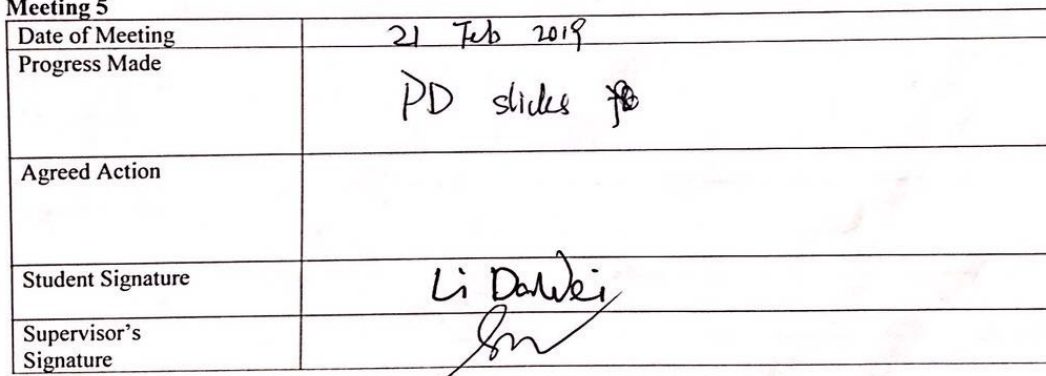 Meeting 5
Date of Meeting 21 Feb 2019
Progress Made
PD slides
Agreed Action
Student Signature Li DaWei
Supervisor's
Signature